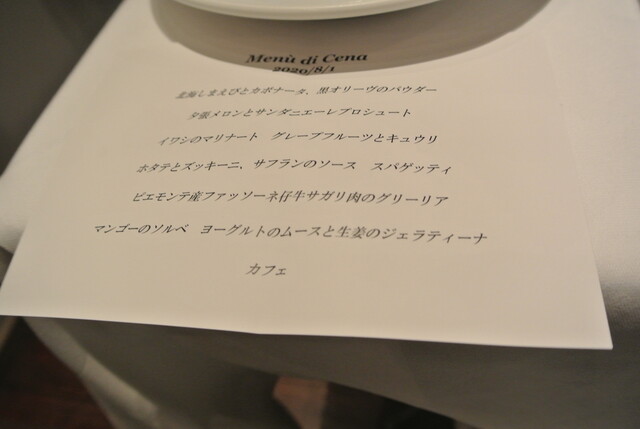 Menù di Cena
2020/8/1
北海しまえびとカポナータ、黒オリーヴのパウダー
夕張メロンとサンダニエーレプロシュート
イワシのマリナート　グレープフルーツとキュウリ
ホタテとズッキーニ、サフランのソース　スパゲッティ
ピエモンテ産ファッソーネ仔牛サガリ肉のグリーリア
マンゴーのソルベ　ヨーグルトのムースと生姜のジェラティーナ
カフェ